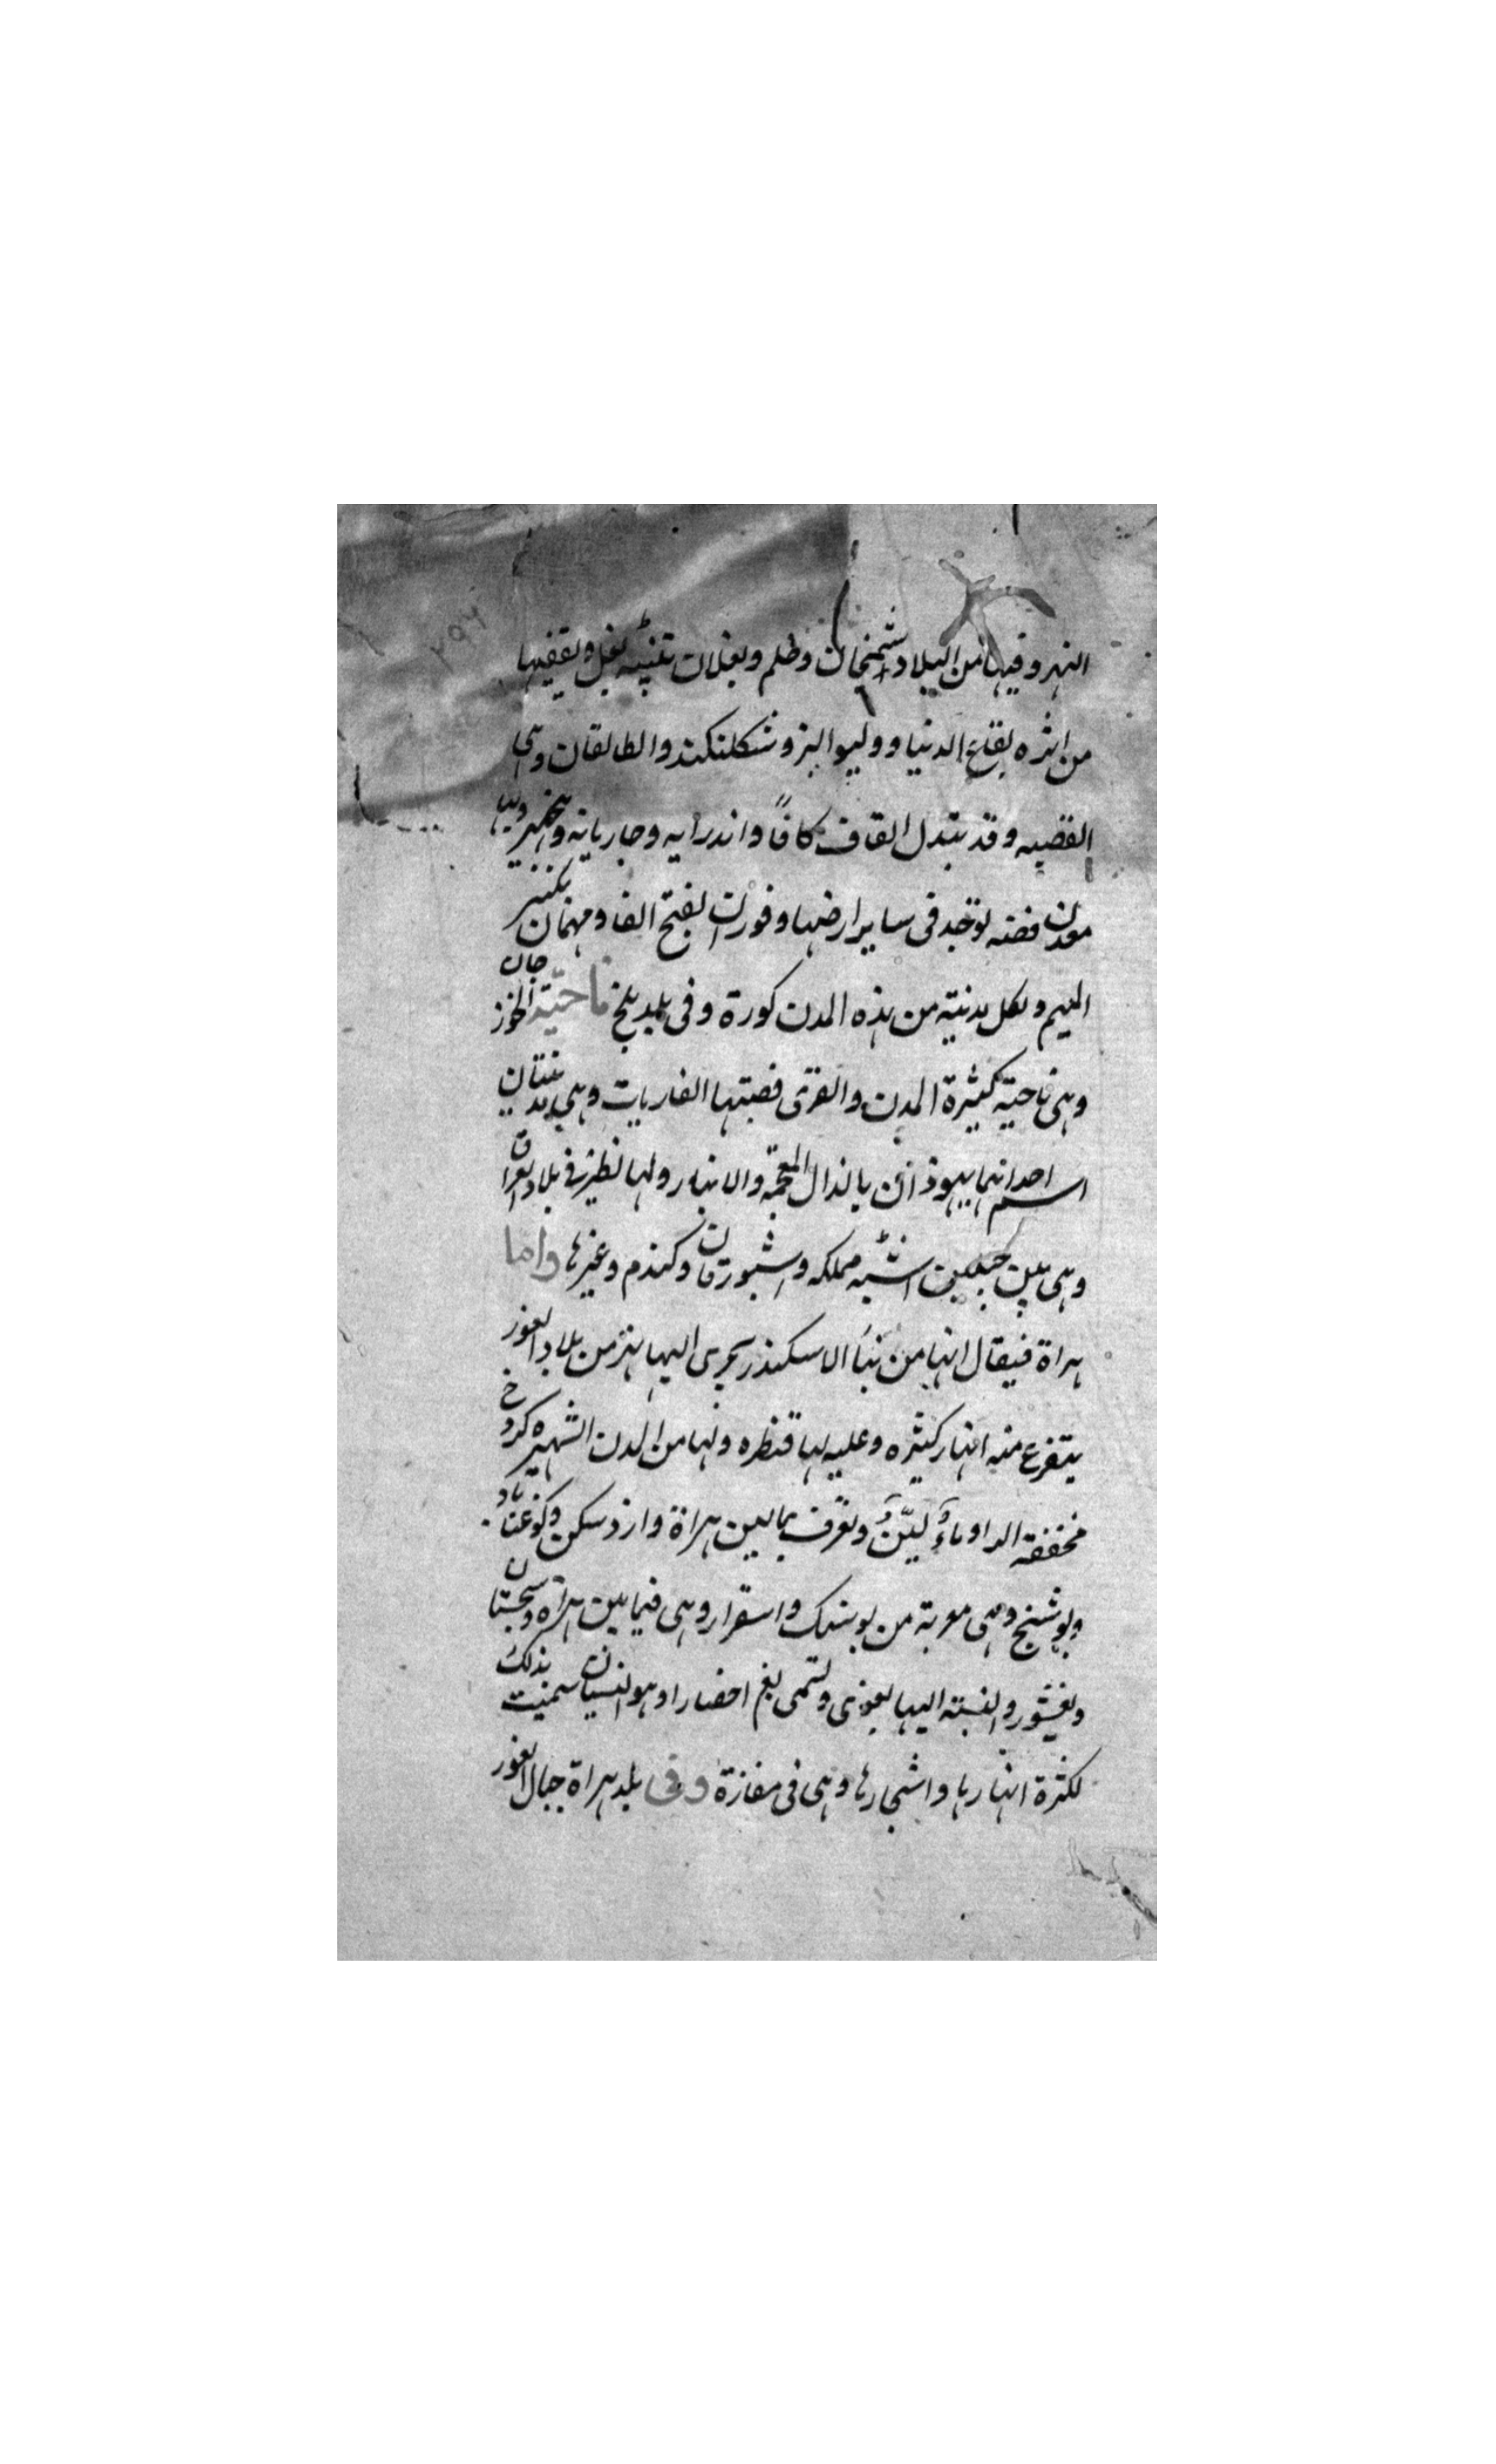 النهر وفيها من البلاد اشمنجان وخلم وبغلان تثنيه بغل ويقفيها
من انزه بقاع الدنيا وولبوالبز وشكلنكند والطالقان وهي
القصبه وقد تبدل القاف كافا واندرابه وجاريانه وبنجهير وبها
معدن فضه توجد في ساير ارضها وفورن بفتح الفا ومهمان بكسر
الميم ولكل مدنية من هذه المدن كورة وفي بلد بلخ ناحية الخوزجان
وهي ناحية كثيرة المدن والقرى قصبتها الفارياب وهي مدينتان
اسم احدانهما يهوذاان بالذال المعجمة والانبار ولها نظير في بلاد العراق
وهي بين جبلين اشبه مملكه واشبورقان وكندم وغيرها واما
هراة فيقال انها من بنا الاسكندر يجرى اليها نهر من بلاد الغور
يتفرع منه انهار كثيره وعليه لها قنطره ولها من المدن الشهيره كروخ
مخففة الداوماء لين وتعرف بمالين هراة وازدسكن وكوغناباد
وبوشنج وهي معربة من بوشنك واسفزار وهي فيما بين هراة وسجستان
وبغشور والنسبته اليها بغوى وتسمى بغ احضار اوهو انسيان سميت بذلك
لكثرة انهارها واشجارها وهي في مفازة وفي بلد هراة جبال الغور